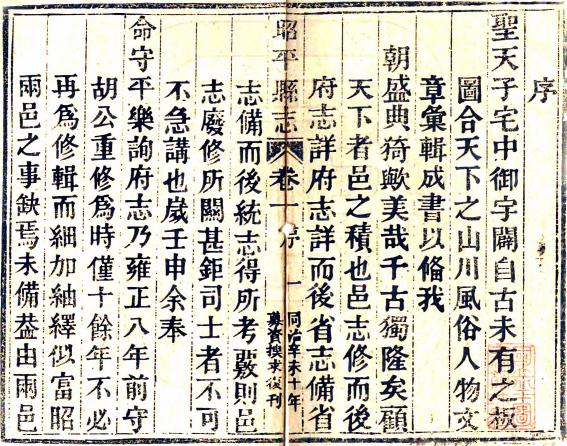 序
聖天子宅中御宇闢自古未有之板
圖合天下之山川風俗人物文
章彙輯成書以俻我
朝盛典猗歟美哉千古獨隆矣顧
天下者邑之積也邑志修而後
府志詳府志詳而後省志備省
昭平縣志 卷一 序 一 同治辛未十年
募資換朿復刊
志備而後統志得所考覈則邑
志廢修所關甚鉅司士者不可
不急講也歲壬申余奉
命守平樂詢府志乃雍正八年前守
胡公重修爲時僅十餘年不必
再爲修輯而細加紬繹似富昭
兩邑之事缺焉未備葢由兩邑